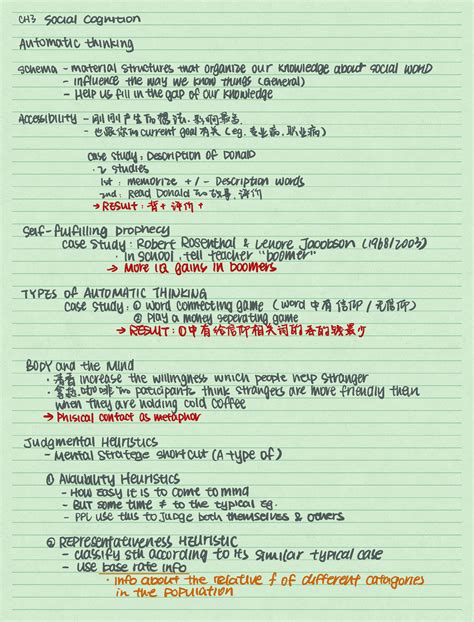 CH3 Social Cognition
Automatic thinking
schema - material structures that organize our knowledge about social world
- influence the way we know things (general)
- Help us fill in the gap of our knowledge
Accessibility - 刚刚产生的想法,影响最大
- 也跟你的current goal有关 (eg. 专业病,职业病)
case study: Description of Donald
· 2 studies
1st: memorize +/- Description words
2nd: Read Donald
→ RESULT: 背+ 评价+
Self-fulfilling prophecy
case study: Robert Rosenthal & Lenore Jacobson (1968/2003)
· In school, tell teacher "boomer"
→ More IQ gains in boomers
TYPES OF AUTOMATIC THINKING
case study: ① word connecting game (word 中有信仰/无信仰)
② Play a money seperating game
→ RESULT: ①中有给信仰相关词的
BODY and the Mind
· increase the willingness which people help stranger
· participants think strangers are more friendly than
when they are holding cold coffee
→ Phisical contact as metaphor
Judgmental Heuristics
- Mental stratege shortcut (A type of)
① Avaibility Heuristics
- How easy it is to come to mind
- But some time ≠ to the typical eg.
- PPL use this to judge both themselves & others
② Representativeness Heuristic
- classify sth according to its similar typical case
- use base rate info
· info about the relative f of different catagories
in the population